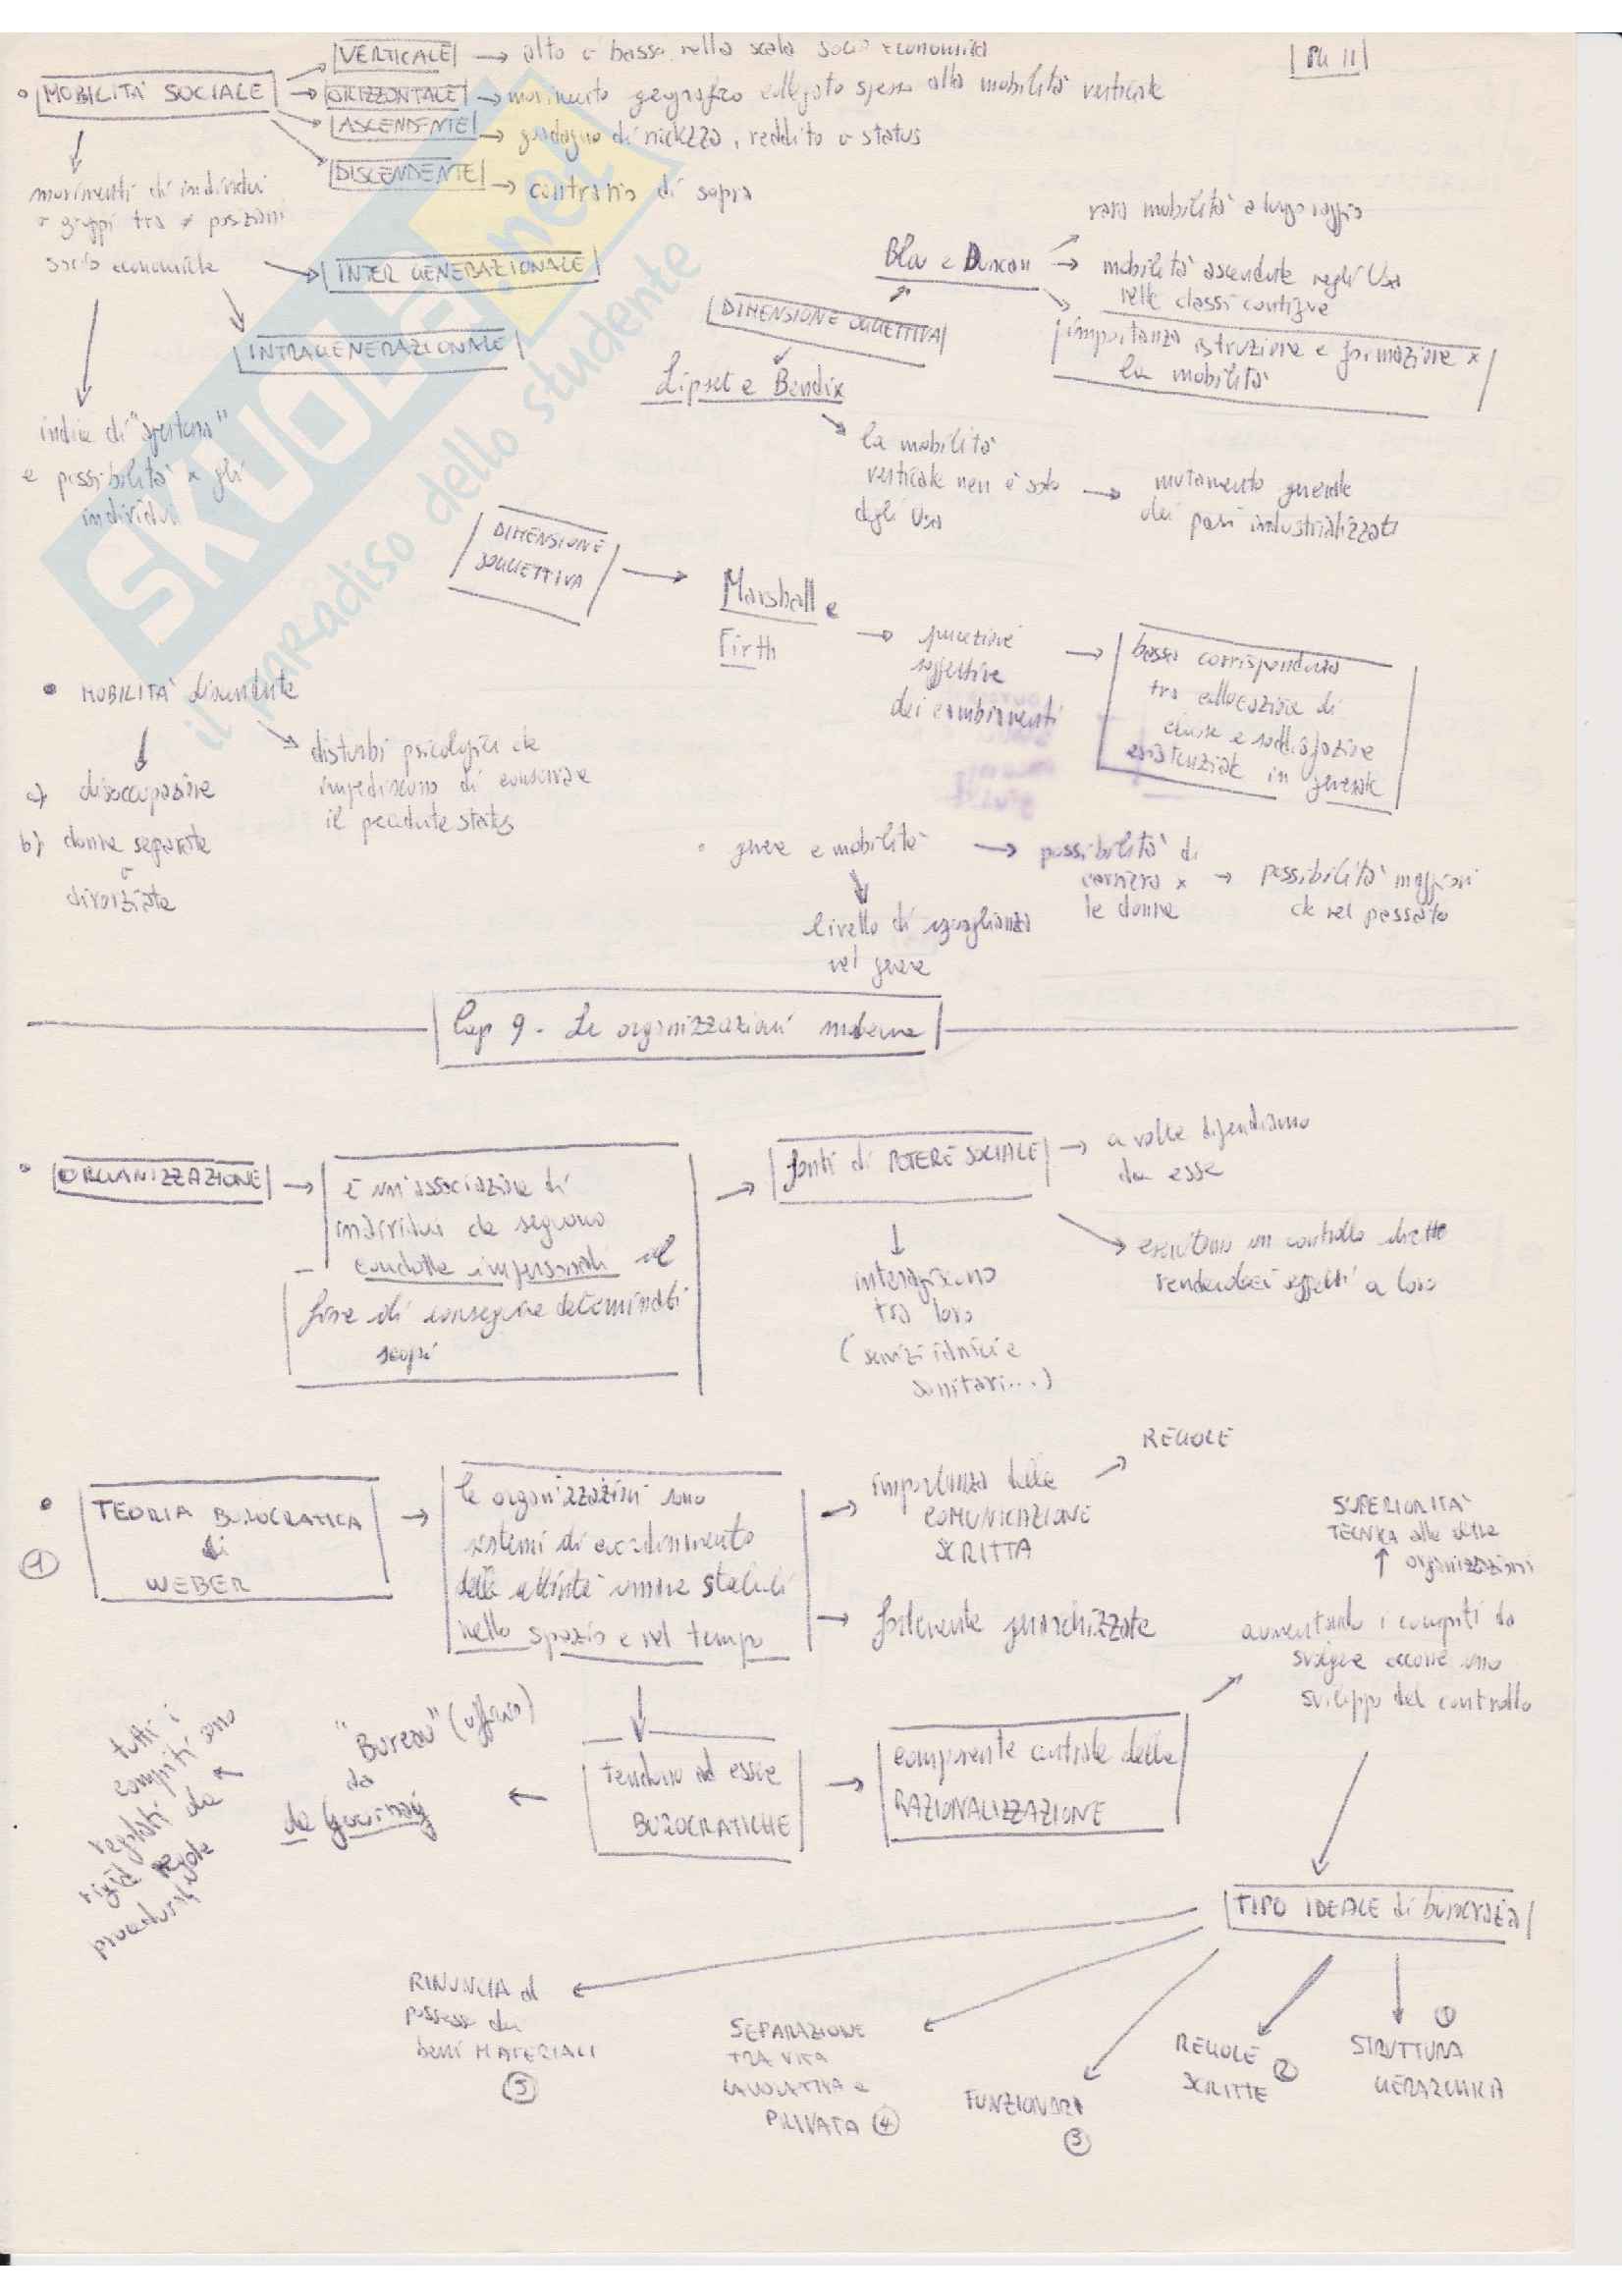 VERTICALE → alto o basso nella scala socio economica
Ph 11
• MOBILITA' SOCIALE → ORIZZONTALE → movimento geografico collegato spesso alla mobilità verticale
ASCENDENTE → guadagno di ricchezza, reddito o status
DISCENDENTE → contrario di sopra
movimenti di individui
o gruppi tra ≠ posizioni
socio economiche
INTER GENERAZIONALE
INTRAGENERAZIONALE
indice di "apertura"
e possibilità x gli
individui
DIMENSIONE OGGETTIVA
Blau e Duncan
rara mobilità a lungo raggio
mobilità ascendente negli Usa
nelle classi contigue
importanza istruzione e formazione x
la mobilità
Lipset e Bendix
la mobilità
verticale non è solo
degli Usa
→ mutamento generale
dei paesi industrializzati
DIMENSIONE
SOGGETTIVA
Marshall e
Firth
→ percezioni
soggettive
dei cambiamenti
bassa corrispondenza
tra collocazione di
classe e soddisfazione
esistenziale in generale
• MOBILITA' discendente
a) disoccupazione
b) donne separate
o
divorziate
disturbi psicologici che
impediscono di conservare
il precedente status
• genere e mobilità → possibilità di
carriera x
le donne
→ possibilità maggiori
che nel passato
livello di uguaglianza
nel genere
Cap 9 - Le organizzazioni moderne
• ORGANIZZAZIONE →
è un'associazione di
individui che seguono
condotte impersonali al
fine di conseguire determinati
scopi
fonti di POTERE SOCIALE
→ a volte dipendiamo
da esse
esercitano un controllo diretto
rendendoci soggetti a loro
interagiscono
tra loro
(servizi idrici e
sanitari...)
• TEORIA BUROCRATICA
di
WEBER
①
le organizzazioni sono
sistemi di coordinamento
delle attività umane stabili
nello spazio e nel tempo
→ importanza delle
COMUNICAZIONE
SCRITTA
REGOLE
→ fortemente gerarchizzate
SUPERIORITA'
TECNICA alle altre
organizzazioni
aumentando i compiti da
svolgere occorre uno
sviluppo del controllo
tendono ad essere
BUROCRATICHE
→ componente centrale della
RAZIONALIZZAZIONE
"Bureau" (ufficio)
da
de Gournay
tutti i
compiti sono
regolati da
rigide regole
procedurali
TIPO IDEALE di burocrazia
STRUTTURA
GERARCHICA ①
REGOLE
SCRITTE ②
FUNZIONARI
③
SEPARAZIONE
TRA VITA
LAVORATIVA e
PRIVATA ④
RINUNCIA al
possesso dei
beni MATERIALI
⑤
SKUOLA.net
il paradiso dello studente